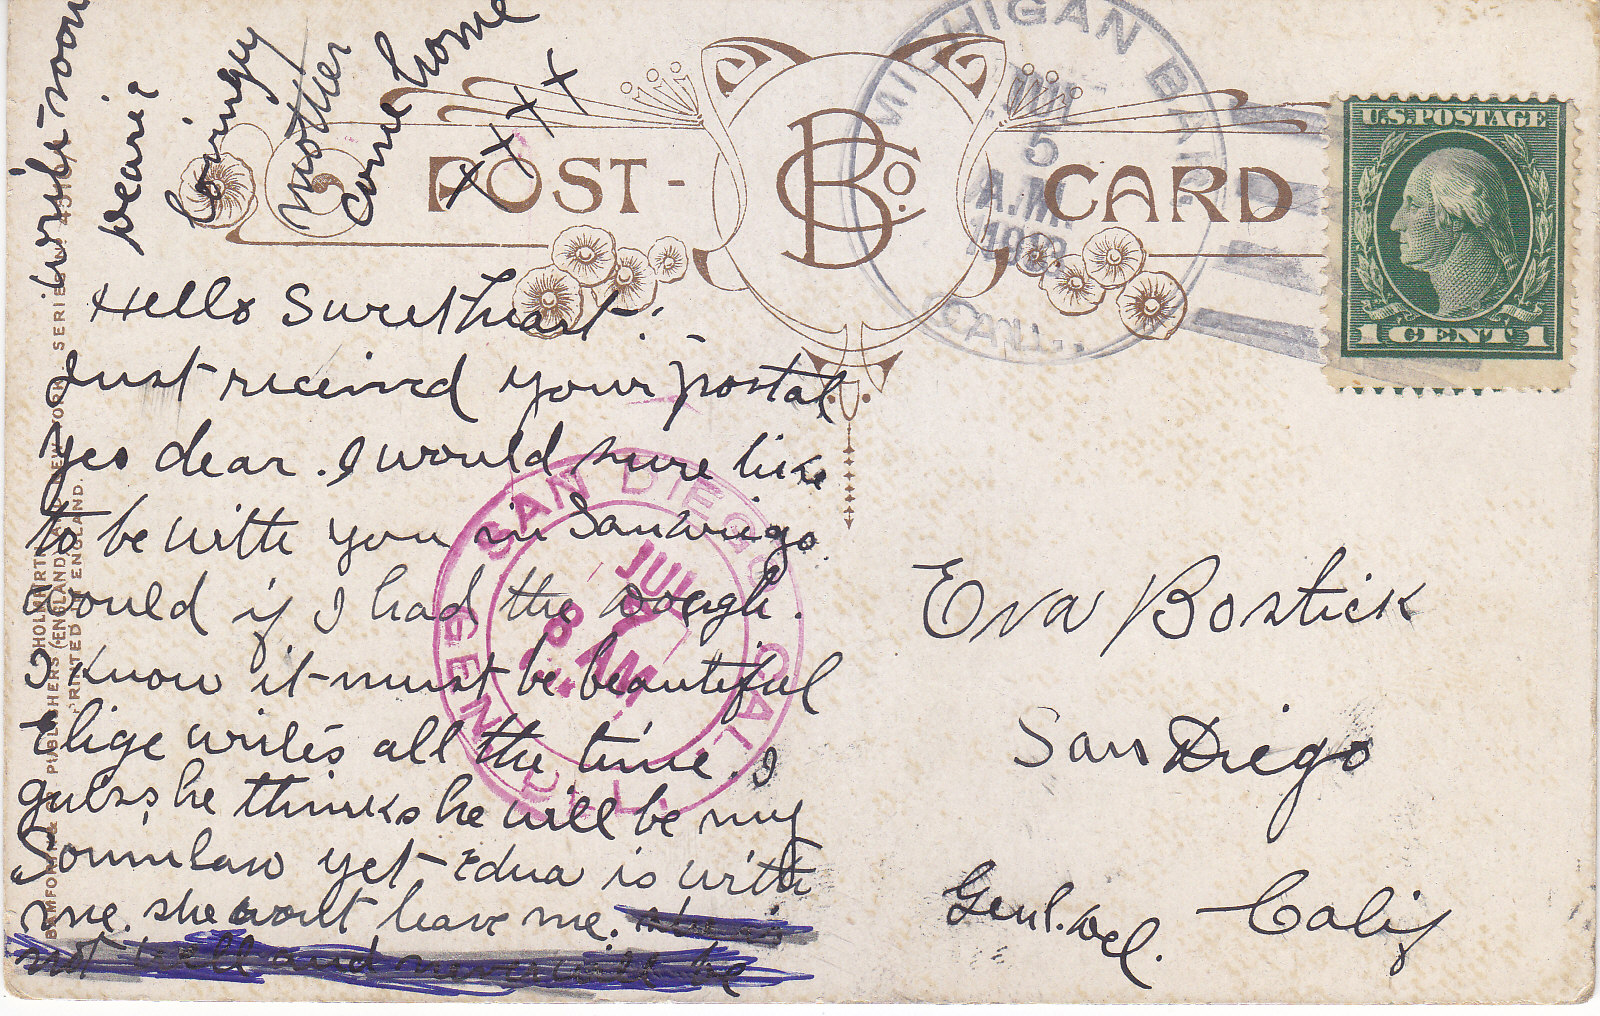 POST-CARD
B Co.
MICHIGAN BAR.
JUL
5
A.M.
1913
CAL.
U.S.POSTAGE
1 CENT 1
Hello Sweetheart:
Just received your postal
Yes dear. I would sure like
to be with you in San Diego
Would if I had the Dough.
I know it must be beautiful
Elige writes all the time. I
guess he thinks he will be my
Soninlaw yet - Edna is with
me. she wont leave me.
not well and
write soon
Lovingly
mother
come home
x x x x
SAN DIEGO CAL.
JUL
8 AM
GEN. DEL.
Eva Bostick
San Diego
Genl. Del. Calif
PUBLISHERS (ENGLAND) AND NEW YORK SERIE
PRINTED IN ENGLAND.